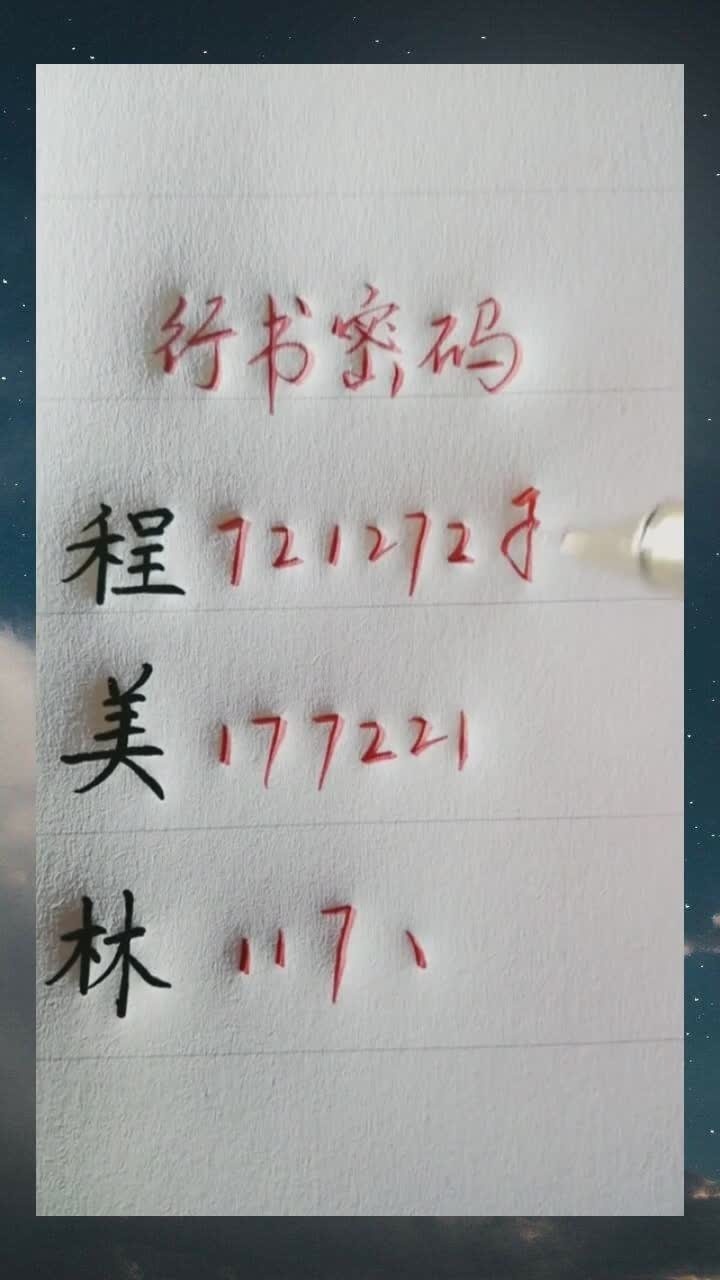 行书密码
程 721272子
美 177221
林 117丶